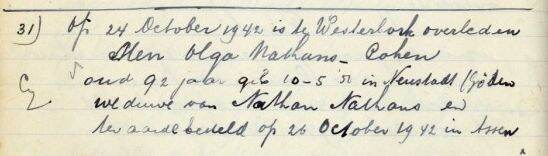 31) Op 24 October 1942 is te Westerbork overleden
Olga Nathans-Cohen
oud 92 jaar geb 10-5 51 in Neustadt (Göden
weduwe van Nathan Nathans en
ter aarde besteld op 26 October 1942 in Assen